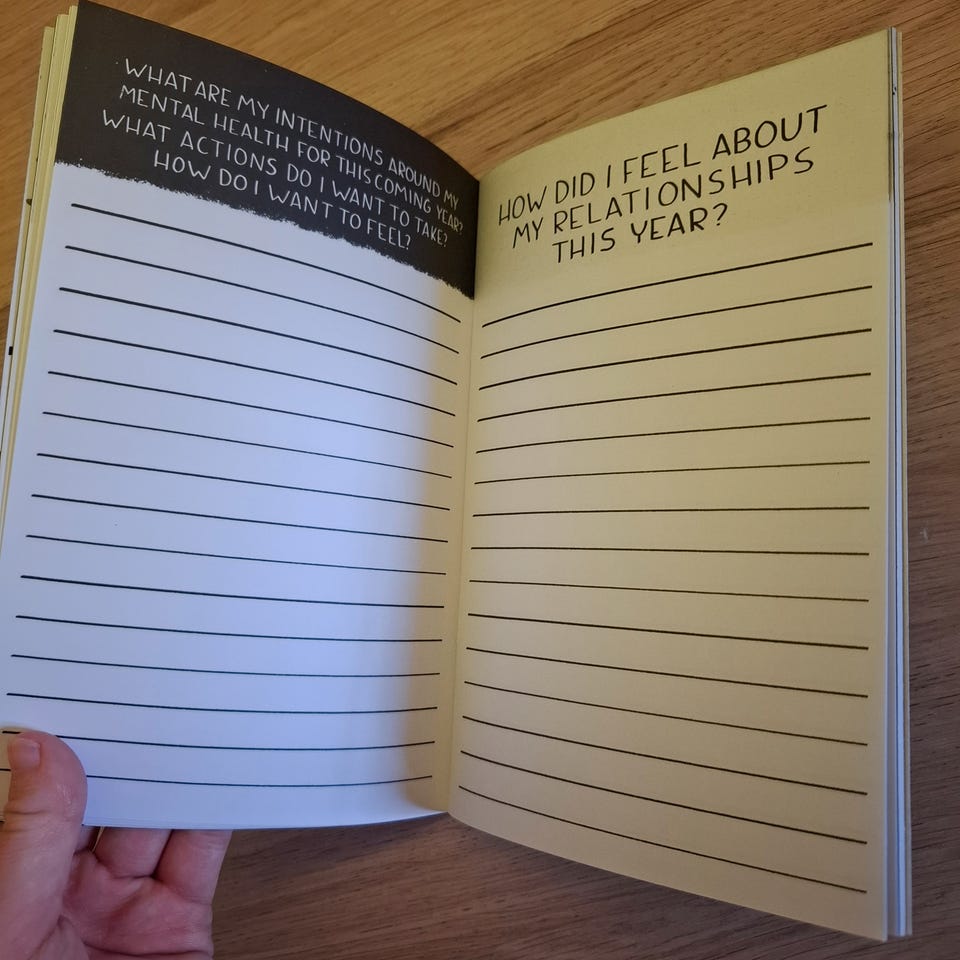 WHAT ARE MY INTENTIONS AROUND MY
MENTAL HEALTH FOR THIS COMING YEAR?
WHAT ACTIONS DO I WANT TO TAKE?
HOW DO I WANT TO FEEL?
HOW DID I FEEL ABOUT
MY RELATIONSHIPS
THIS YEAR?